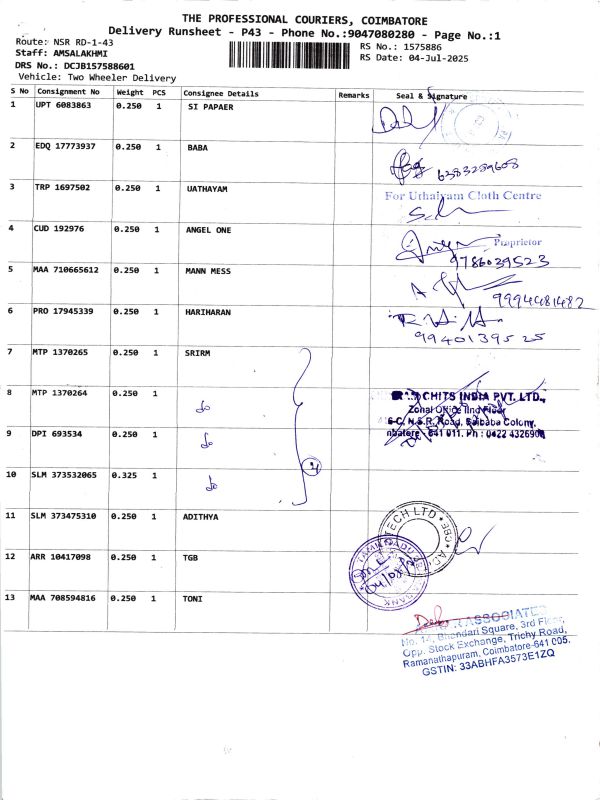 THE PROFESSIONAL COURIERS, COIMBATORE
Delivery Runsheet - P43 - Phone No.:9047080280 - Page No.:1
Route: NSR RD-1-43
Staff: AMSALAKHMI
DRS No.: DCJB157588601
Vehicle: Two Wheeler Delivery
RS No.: 1575886
RS Date: 04-Jul-2025
S No Consignment No Weight PCS Consignee Details Remarks Seal & Signature
1 UPT 6083863 0.250 1 SI PAPAER
2 EDQ 17773937 0.250 1 BABA
6383289608
3 TRP 1697502 0.250 1 UATHAYAM
For Uthaiyam Cloth Centre
4 CUD 192976 0.250 1 ANGEL ONE
Proprietor
9786039523
5 MAA 710665612 0.250 1 MANN MESS
9994481482
6 PRO 17945339 0.250 1 HARIHARAN
9940139525
7 MTP 1370265 0.250 1 SRIRM
8 MTP 1370264 0.250 1 do
CHITS INDIA PVT. LTD.,
Zonal Office IInd Floor
N.S.R. Road, Saibaba Colony,
641 011. Ph : 0422 432690
9 DPI 693534 0.250 1 do
4
10 SLM 373532065 0.325 1 do
11 SLM 373475310 0.250 1 ADITHYA
TECH LTD
CBE
12 ARR 10417098 0.250 1 TGB
TAMILNADU
BANK
13 MAA 708594816 0.250 1 TONI
ASSOCIATE
No. 14, Bhandari Square, 3rd Floor,
Opp. Stock Exchange, Trichy Road,
Ramanathapuram, Coimbatore-641 005.
GSTIN: 33ABHFA3573E1ZQ